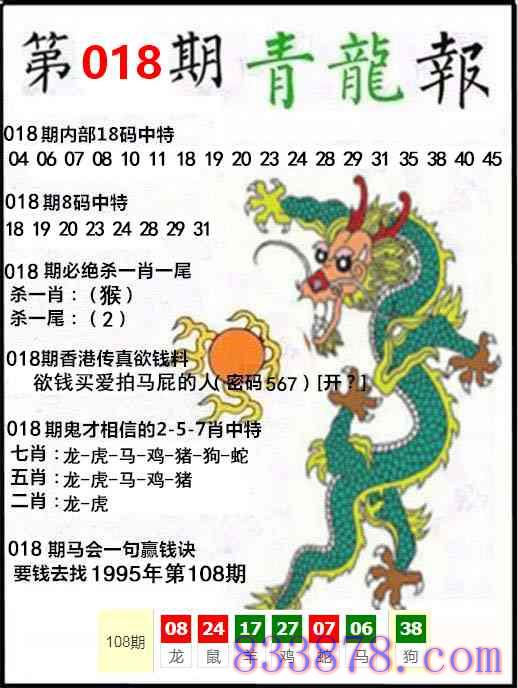 第018期青龍報
018期内部18码中特
04 06 07 08 10 11 18 19 20 23 24 28 29 31 35 38 40 45
018期8码中特
18 19 20 23 24 28 29 31
018 期必绝杀一肖一尾
杀一肖：（猴）
杀一尾：（2）
018期香港传真欲钱料
欲钱买爱拍马屁的人(密码567)[开?]
018期鬼才相信的2-5-7肖中特
七肖：龙-虎-马-鸡-猪-狗-蛇
五肖：龙-虎-马-鸡-猪
二肖：龙-虎
018 期马会一句赢钱诀
要钱去找1995年第108期
108期 08 24 17 27 07 06 38
龙 鼠 羊 鸡 蛇 马 狗
833878.com